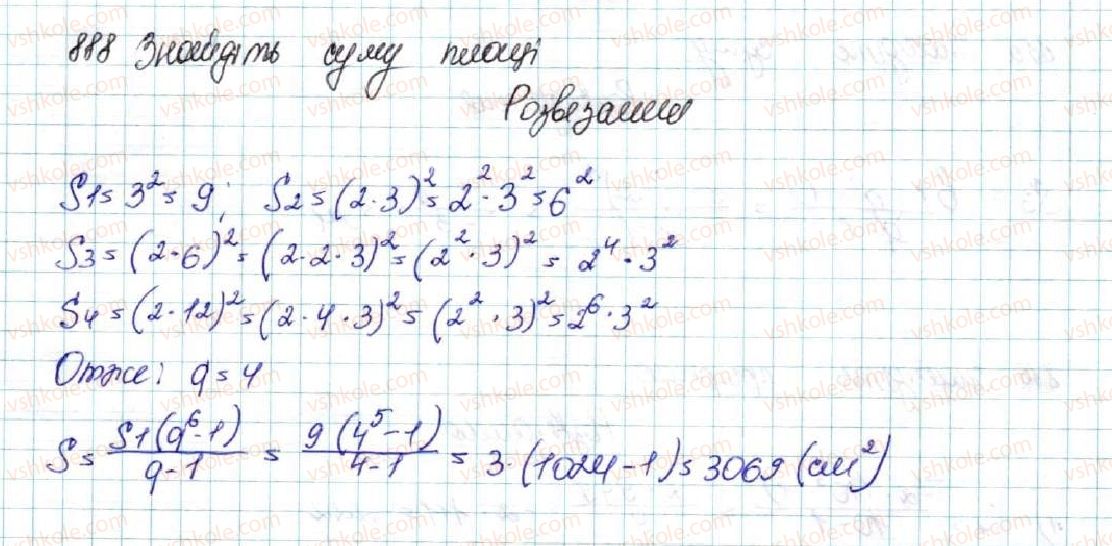 888 Знайдіть суму площі
Розвезання
S1 = 3² = 9; S2 = (2·3)² = 2²·3² = 6²
S3 = (2·6)² = (2·2·3)² = (2²·3)² = 2⁴·3²
S4 = (2·12)² = (2·4·3)² = (2²·3)² = 2⁶·3²
Отже: q = 4
S = S1(q⁶-1)/q-1 = 9(4⁵-1)/4-1 = 3·(1024-1) = 3069 (см²)